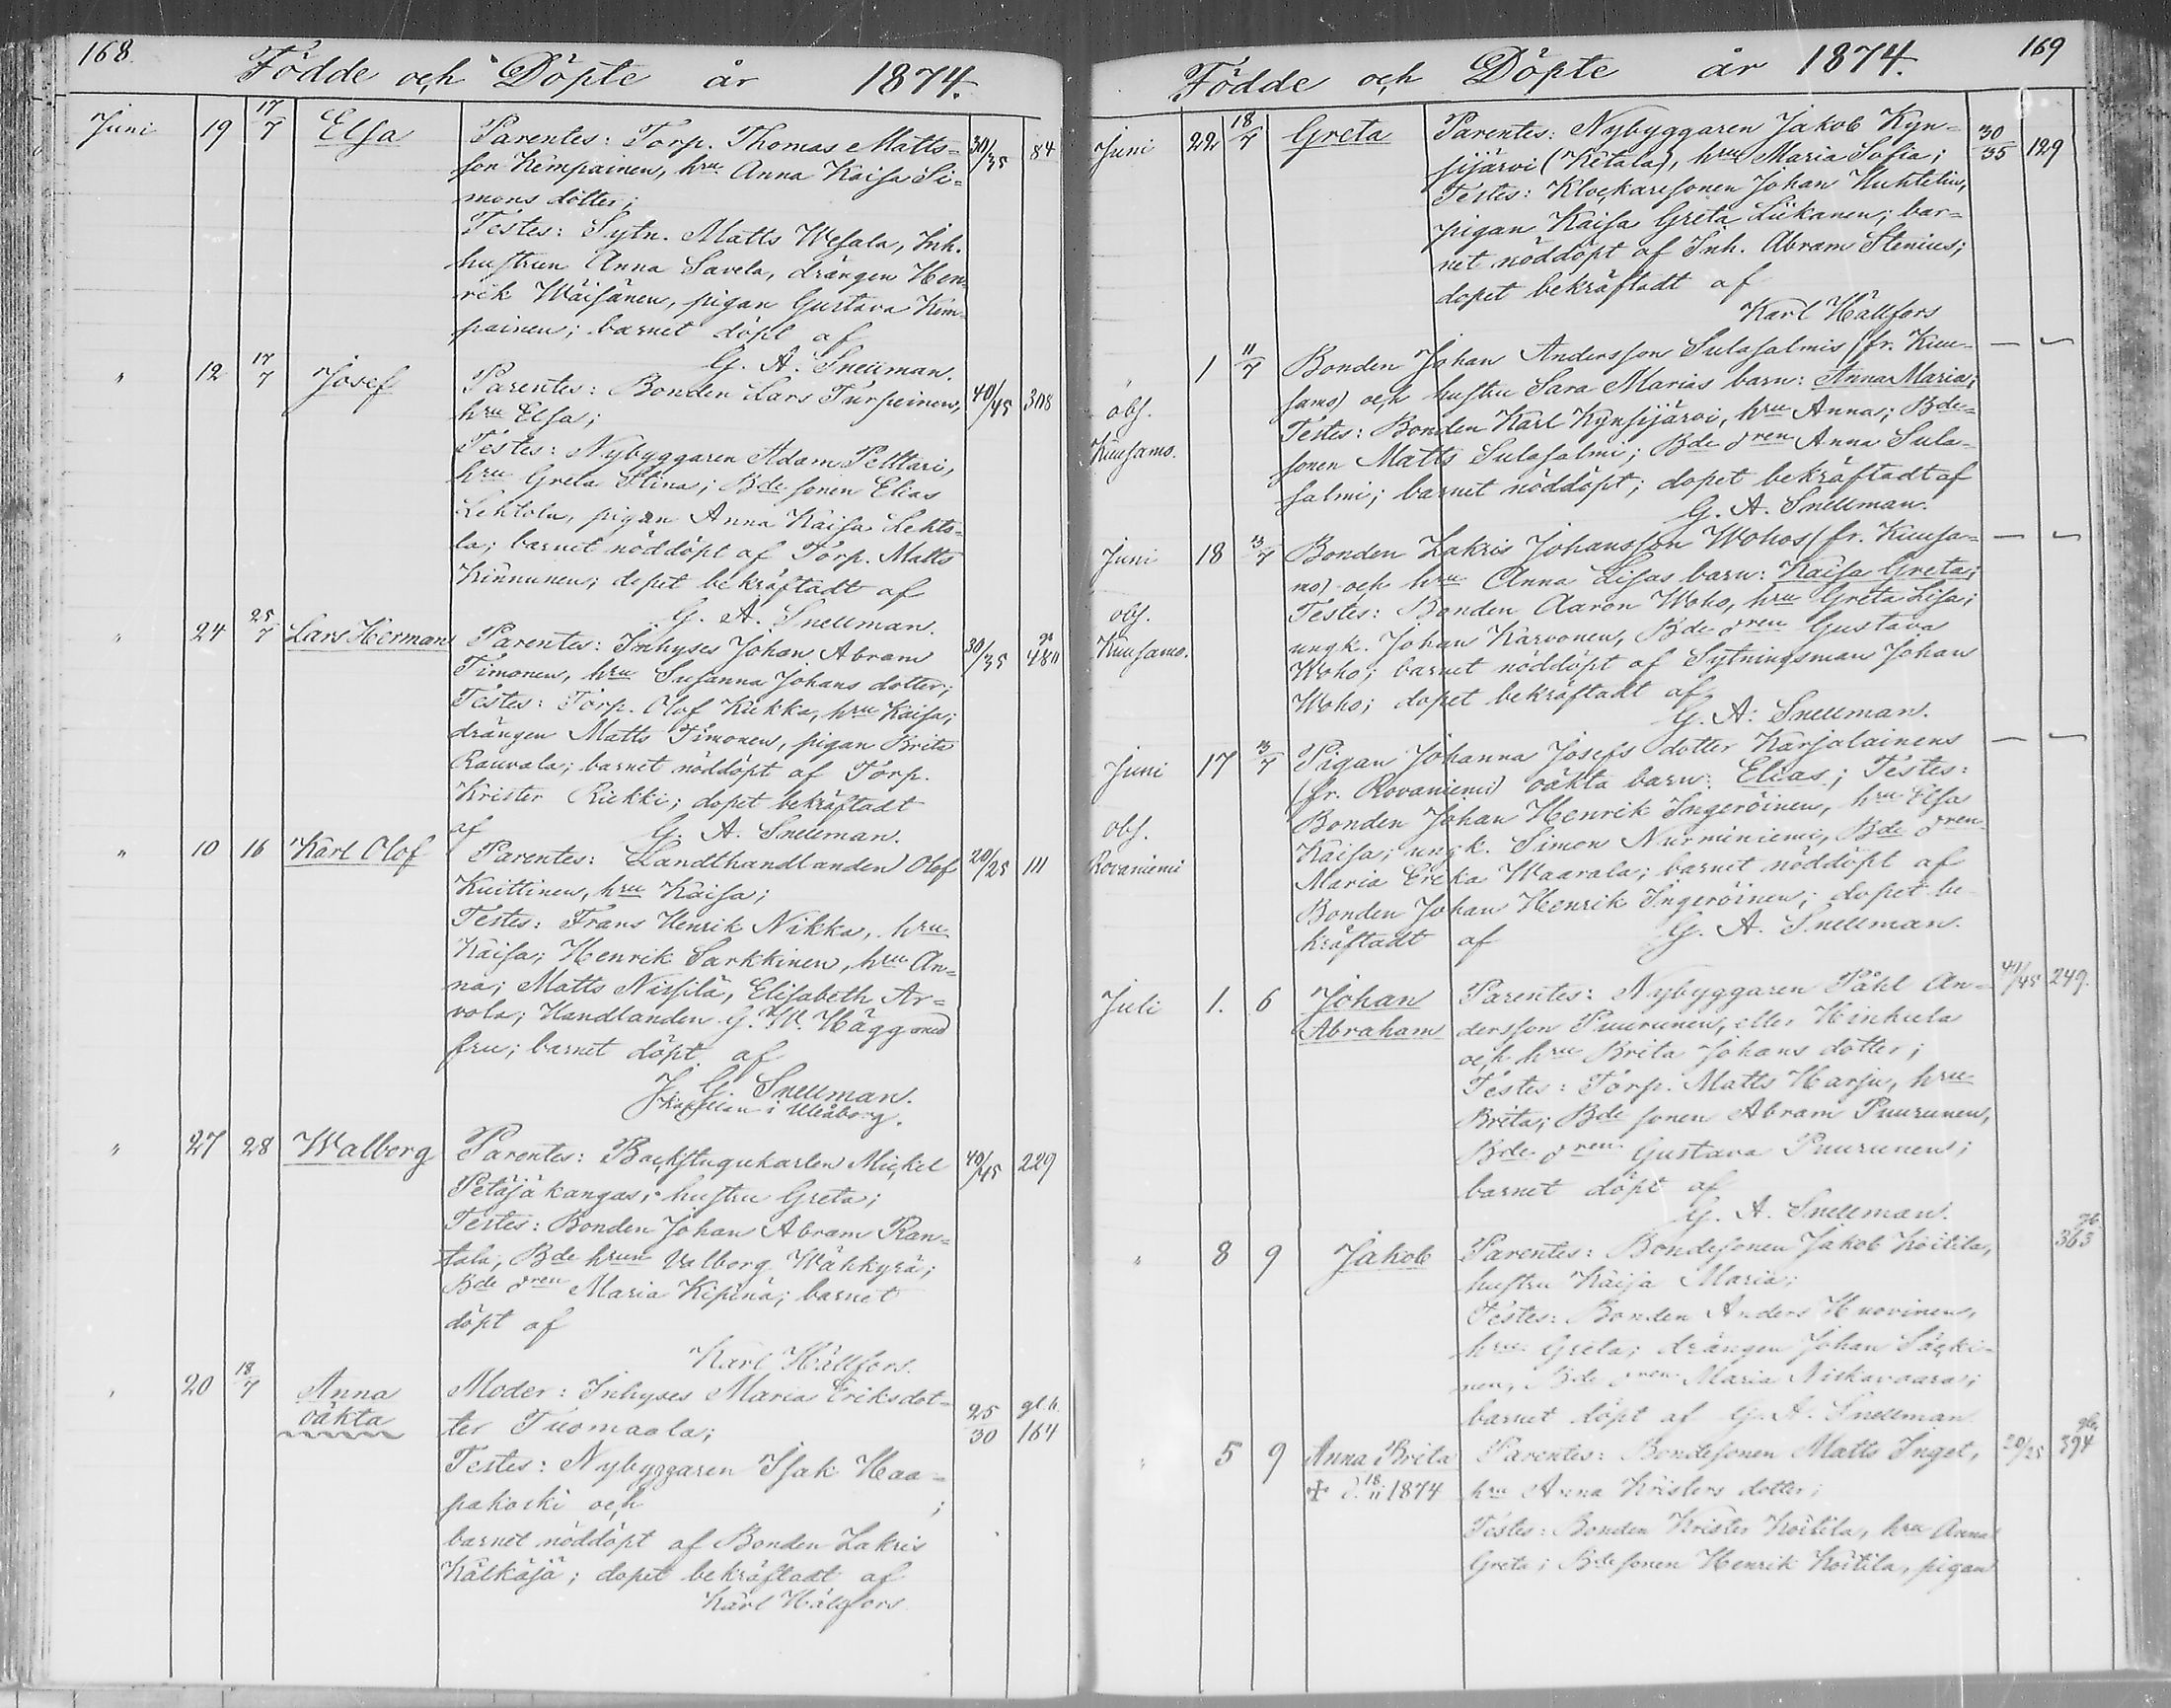 168.
Födde och Döpte år 1874.
Juni 19 17/7 Elsa Parentes: Torp. Thomas Matts- 30/35 84
son Kemppainen, hru Anna Kaisa Si-
mons dotter;
Testes: Sytn. Matts Wesala, Inh.
hustrun Anna Savela, drängen Hen-
rik Wäisänen, pigan Gustava Kem-
painen; barnet döpt af
G. A. Snellman.
" 12 17/7 Josef Parentes: Bonden Lars Turpeinen, 40/45 308
hru Elsa;
Testes: Nybyggaren Adam Peltari,
hru Greta Stina; Bde sonen Elias
Lehtola, pigan Anna Kaisa Lehto-
la; barnet nöddöpt af Torp. Matts
Kinnunen; dopet bekräftadt af
G. A. Snellman.
" 24 25/7 Lars Herman Parentes: Inhyses Johan Abram 30/35 480
Timonen, hru Susanna Johans dotter;
Testes: Torp. Olof Kukka, hru Kaisa;
drängen Matts Timonen, pigan Brita
Rauvala; barnet nöddöpt af Torp.
Krister Riekki; dopet bekräftadt
af G. A. Snellman.
" 10 16 Karl Olof Parentes: Landthandlanden Olof 20/25 111
Kuittinen, hru Kaisa;
Testes: Frans Henrik Nikka, hru
Kaisa; Henrik Sarkkinen, hru An-
na; Matts Nissilä, Elisabeth Ar-
vola; Handlanden G. W. Hägg med
fru; barnet döpt af
J. G. Snellman.
Kapellan i Uleåborg.
" 27 28 Walborg Parentes: Backstugukarlen Mickel 40/45 229
Petäjäkangas, hustru Greta;
Testes: Bonden Johan Abram Ran-
tala, Bde hrun Valborg Wähkyrä;
Bde dren Maria Kipinä; barnet
döpt af
Karl Hällfors.
" 20 18/7 Anna Moder: Inhyses Maria Eriksdot- 25/30 gl.b. 164
oäkta ter Tuomaala;
Testes: Nybyggaren Isak Haa-
pakoski och ;
barnet nöddöpt af Bonden Zakris
Kälkäjä; dopet bekräftadt af
Karl Hällfors
169
Födde och Döpte år 1874.
Juni 22 18/7 Greta Parentes: Nybyggaren Jakob Kyn- 30/35 129
sijärvi (Ketala), hru Maria Sofia;
Testes: Klockaresonen Johan Huhtelin,
pigan Kaisa Greta Liikanen; bar-
net nöddöpt af Inh. Abram Stenius;
dopet bekräftadt af
Karl Hällfors
" 1 11/7 Bonden Johan Andersson Sulasalmis (fr. Kuu- — —
obs. samo) och hustru Sara Marias barn: Anna Maria;
Testes: Bonden Karl Kynsijärvi, hru Anna; Bde-
Kuusamo. sonen Matts Sulasalmi; Bde dren Anna Sula-
salmi; barnet nöddöpt; dopet bekräftadt af
G. A. Snellman.
Juni 18 13/7 Bonden Zakris Johansson Wohos (fr. Kuusa- — —
mo) och hru Anna Lisas barn: Kaisa Greta;
obs. Testes: Bonden Aaron Woho, hru Greta Lisa;
Kuusamo. ungk. Johan Karvonen, Bde dren Gustava
Woho; barnet nöddöpt af Sytningsman Johan
Woho; dopet bekräftadt af
G. A. Snellman.
Juni 17 13/7 Pigan Johanna Josefs dotter Karjalainens — —
(fr. Rovaniemi) oäkta barn: Elias; Testes:
obs. Bonden Johan Henrik Ingeröinen, hru Elsa
Rovaniemi Kaisa; ungk. Simon Nurminiemi, Bde dren
Maria Ereka Waarala; barnet nöddöpt af
Bonden Johan Henrik Ingeröinen; dopet be-
kräftadt af G. A. Snellman.
Juli 1. 6 Johan Parentes: Nybyggaren Påhl An- 40/45 249.
Abraham dersson Puurunen, eller Hinkula
och hru Brita Johans dotter;
Testes: Torp. Matts Harju, hru
Brita; Bde sonen Abram Puurunen,
Bde dren Gustava Puurunen;
barnet döpt af
G. A. Snellman.
" 8 9 Jakob Parentes: Bondesonen Jakob Koitila, 363
hustru Kaija Maria;
Testes: Bonden Anders Huovinen,
hru Greta; drängen Johan Säcki-
nen, Bde dren Maria Niskavaara;
barnet döpt af G. A. Snellman
" 5 9 Anna Brita Parentes: Bondesonen Matts Inget, 20/25 394
✠ d. 18/11 1874 hru Anna Kristers dotter;
Testes: Bonden Krister Koitila, hru Anna
Greta; Bdesonen Henrik Koitila, pigan